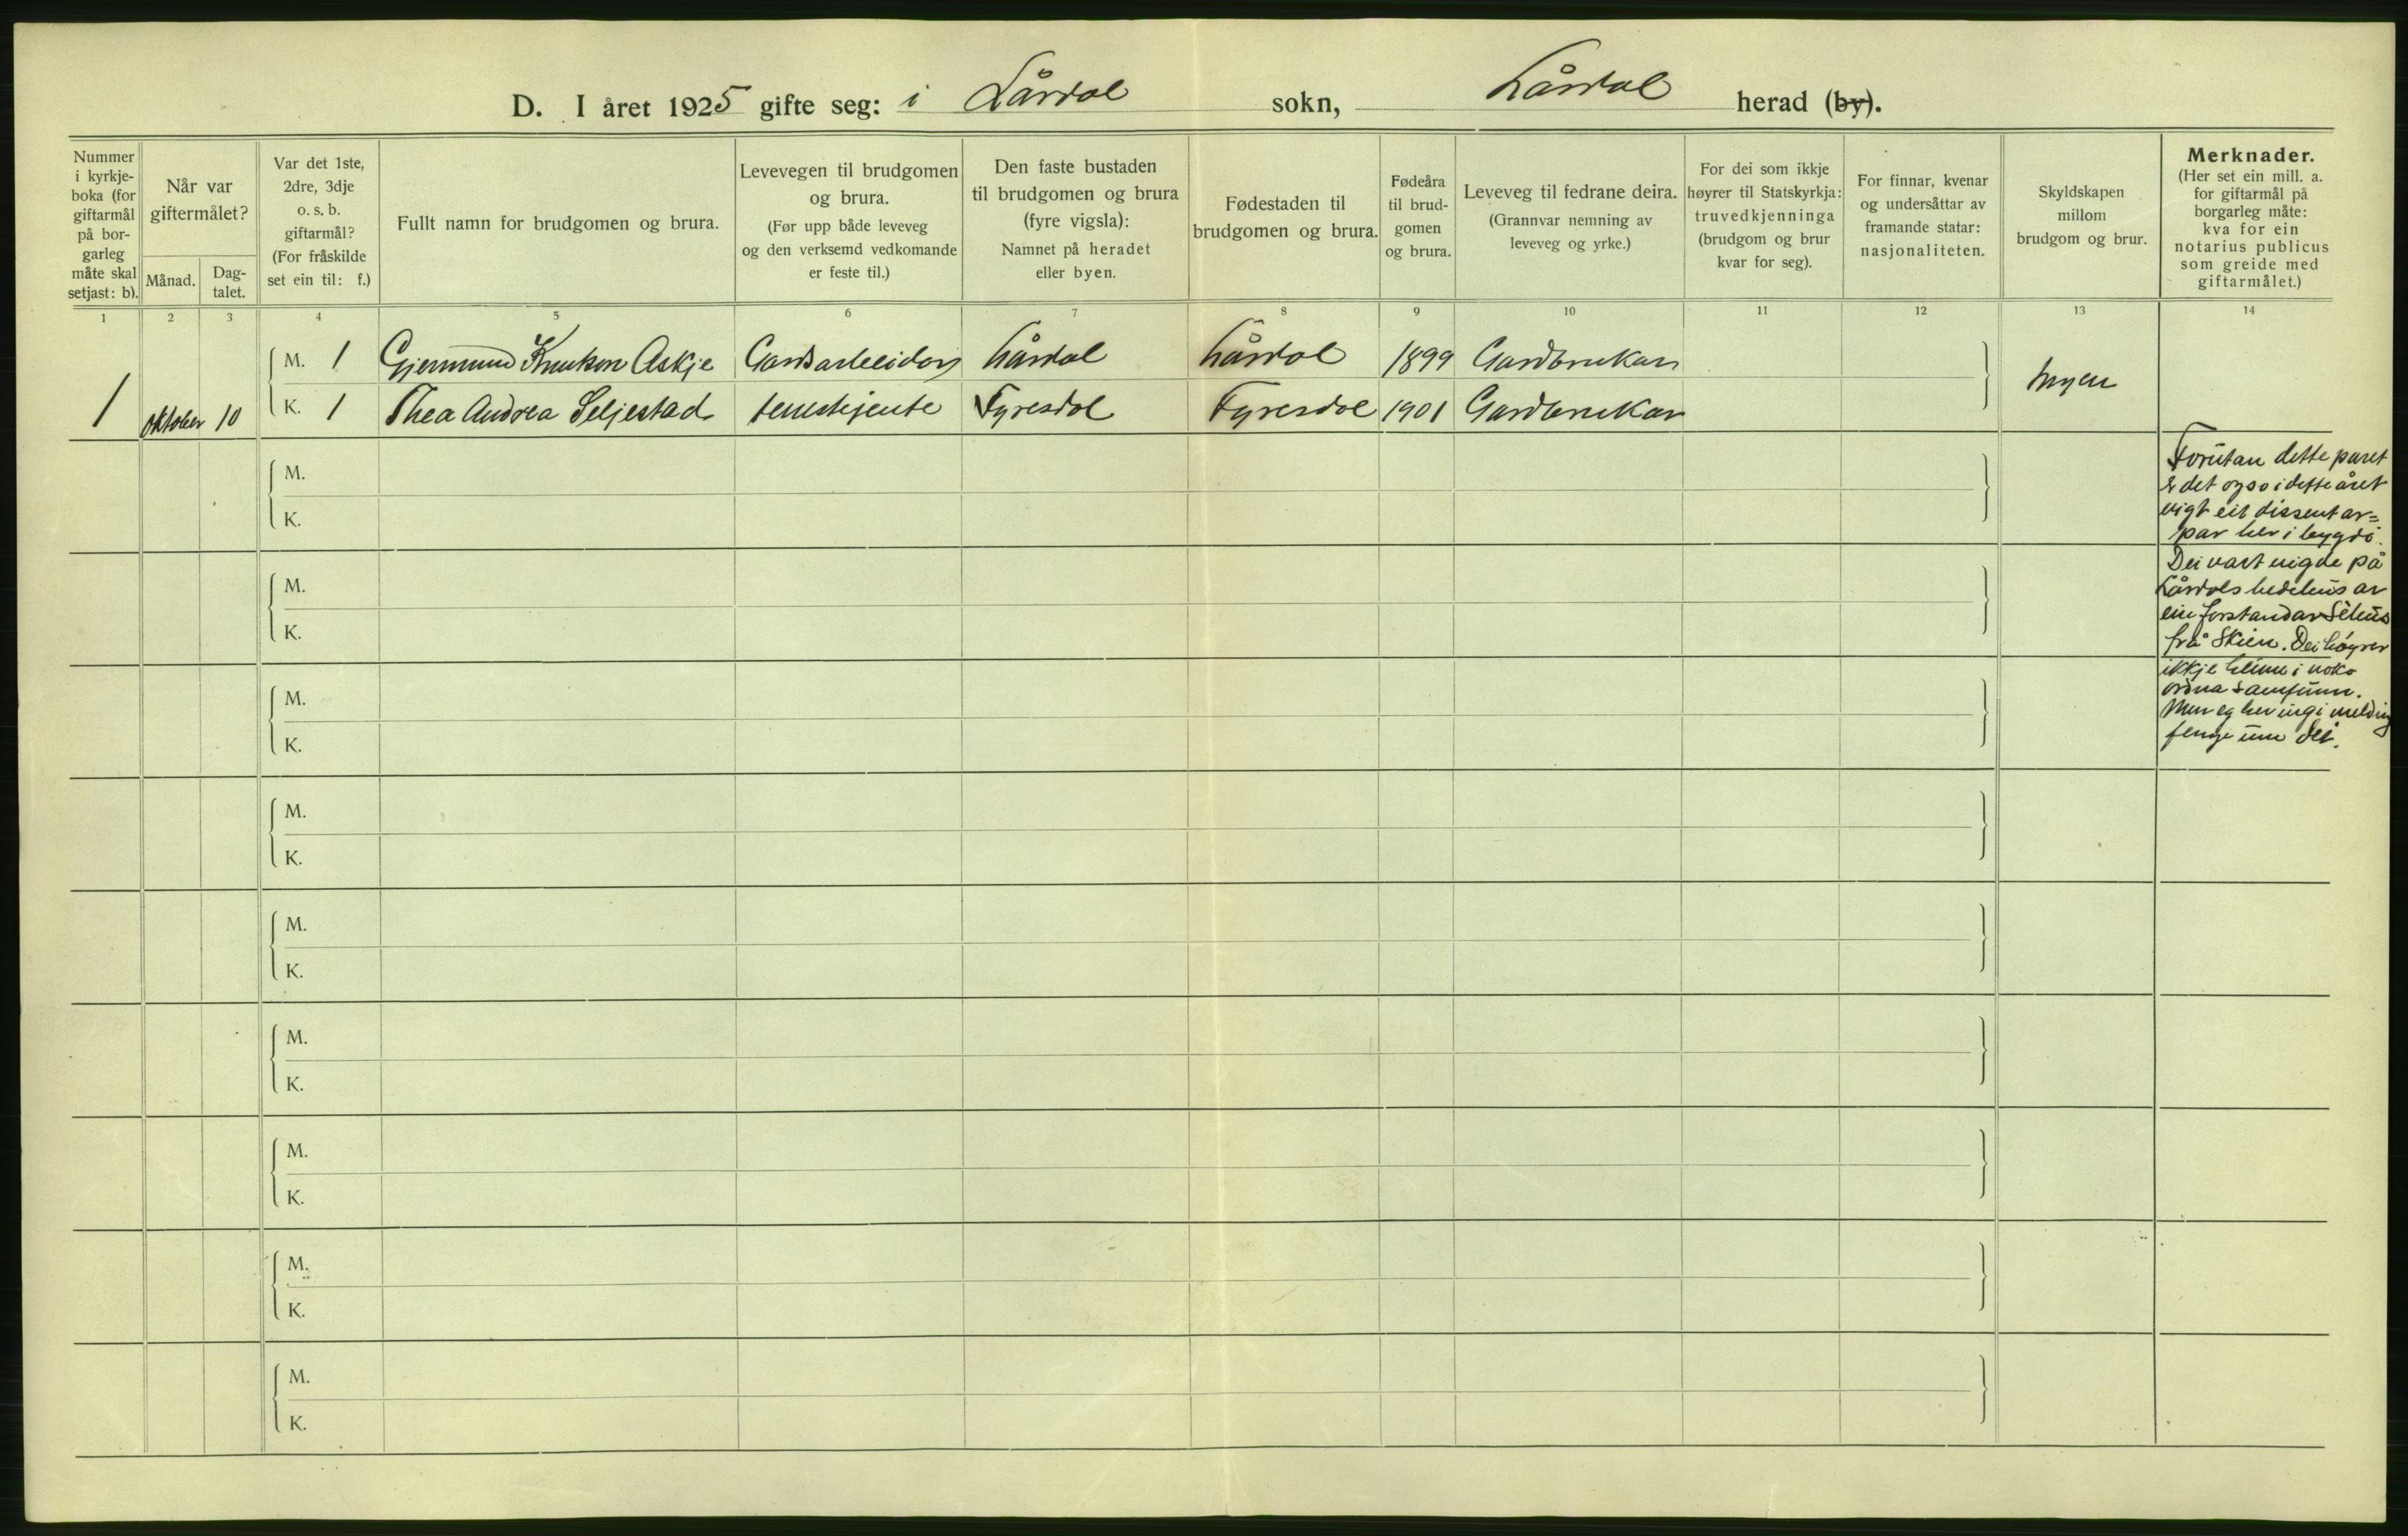 D. I året 1925 gifte seg: i Lårdal sokn, Lårdal herad (by).
Nummer
i kyrkje-
boka (for
giftarmål
på bor-
garleg
måte skal
setjast: b).
Når var
giftermålet?
Månad.
Dag-
talet.
Var det 1ste,
2dre, 3dje
o. s. b.
giftarmål?
(For fråskilde
set ein til: f.)
Fullt namn for brudgomen og brura.
Levevegen til brudgomen
og brura.
(Før upp både leveveg
og den verksemd vedkomande
er feste til.)
Den faste bustaden
til brudgomen og brura
(fyre vigsla):
Namnet på heradet
eller byen.
Fødestaden til
brudgomen og brura.
Fødeåra
til brud-
gomen
og brura.
Leveveg til fedrane deira.
(Grannvar nemning av
leveveg og yrke.)
For dei som ikkje
høyrer til Statskyrkja:
truvedkjenninga
(brudgom og brur
kvar for seg).
For finnar, kvenar
og undersåttar av
framande statar:
nasjonaliteten.
Skyldskapen
millom
brudgom og brur.
Merknader.
(Her set ein mill. a.
for giftarmål på
borgarleg måte:
kva for ein
notarius publicus
som greide med
giftarmålet.)
1 2 3 4 5 6 7 8 9 10 11 12 13 14
M. 1 Gjermund Knutson Askje Gardsarbeidar Lårdal Lårdal 1899 Gardbrukar
1 oktober 10 K. 1 Thea Andrea Seljestad tenestejente Fyresdal Fyresdal 1901 Gardbrukar
Ingen
Forutan dette paret
er det ogso i dette året
vigt eit dissentar=
par her i bygdi.
Dei vart vigde på
Lårdals bedehus av
ein forstandar
frå Skien. Dei høyrer
ikkje heime i noko
ordna samfunn.
Men eg hev ingi melding
fenge um det.
M.
K.
M.
K.
M.
K.
M.
K.
M.
K.
M.
K.
M.
K.
M.
K.
M.
K.